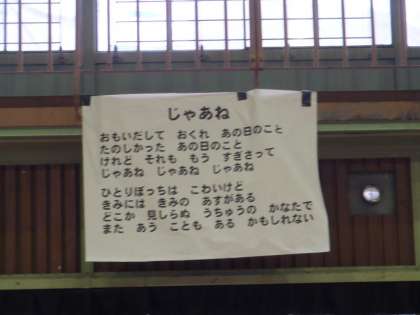 じゃあね
おもいだして　おくれ　あの日のこと
たのしかった　あの日のこと
けれど　それも　もう　すぎさって
じゃあね　じゃあね　じゃあね
ひとりぼっちは　こわいけど
きみには　きみの　あすがある
どこか　見しらぬ　うちゅうの　かなたで
また　あう　ことも　ある　かもしれない